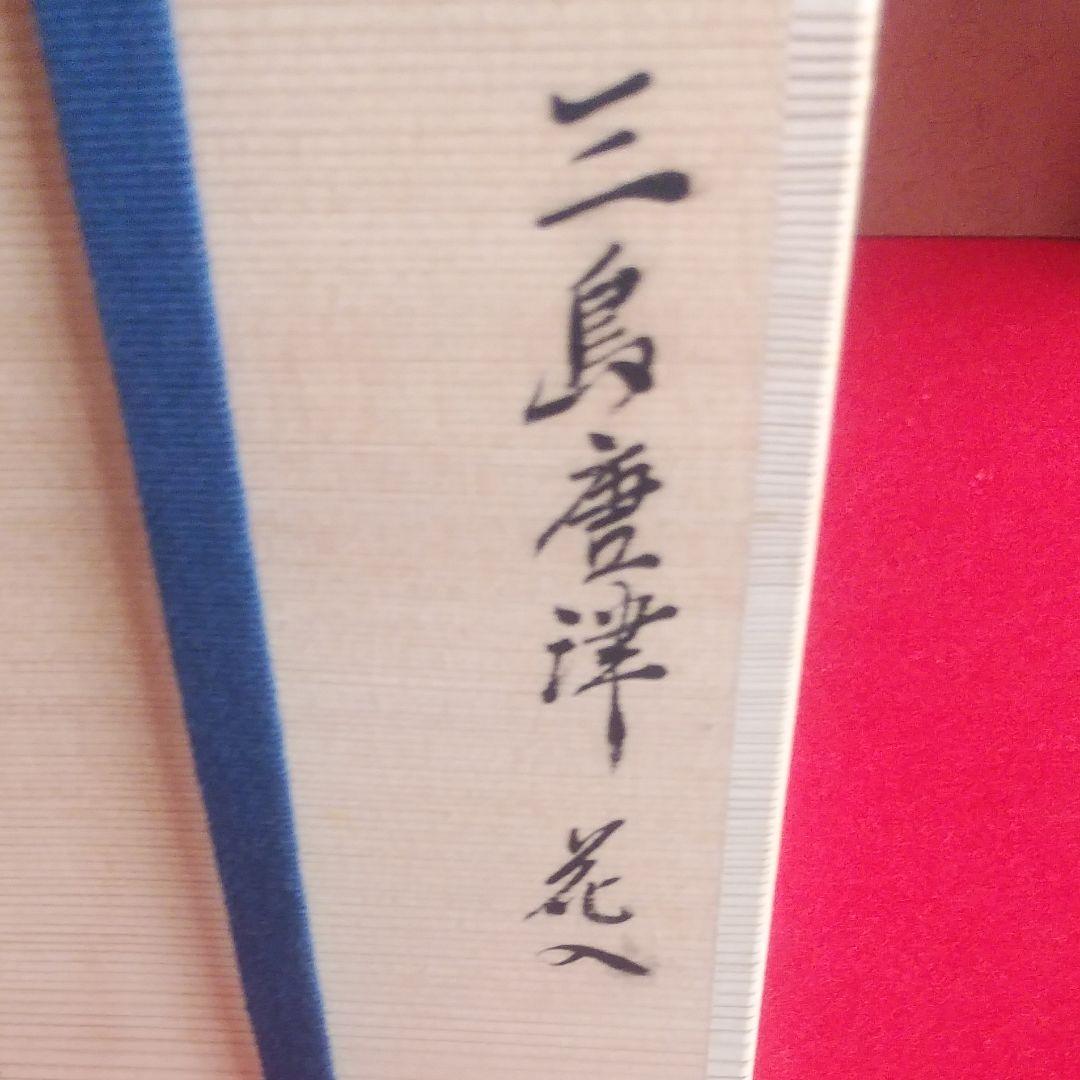 三島唐津 花入